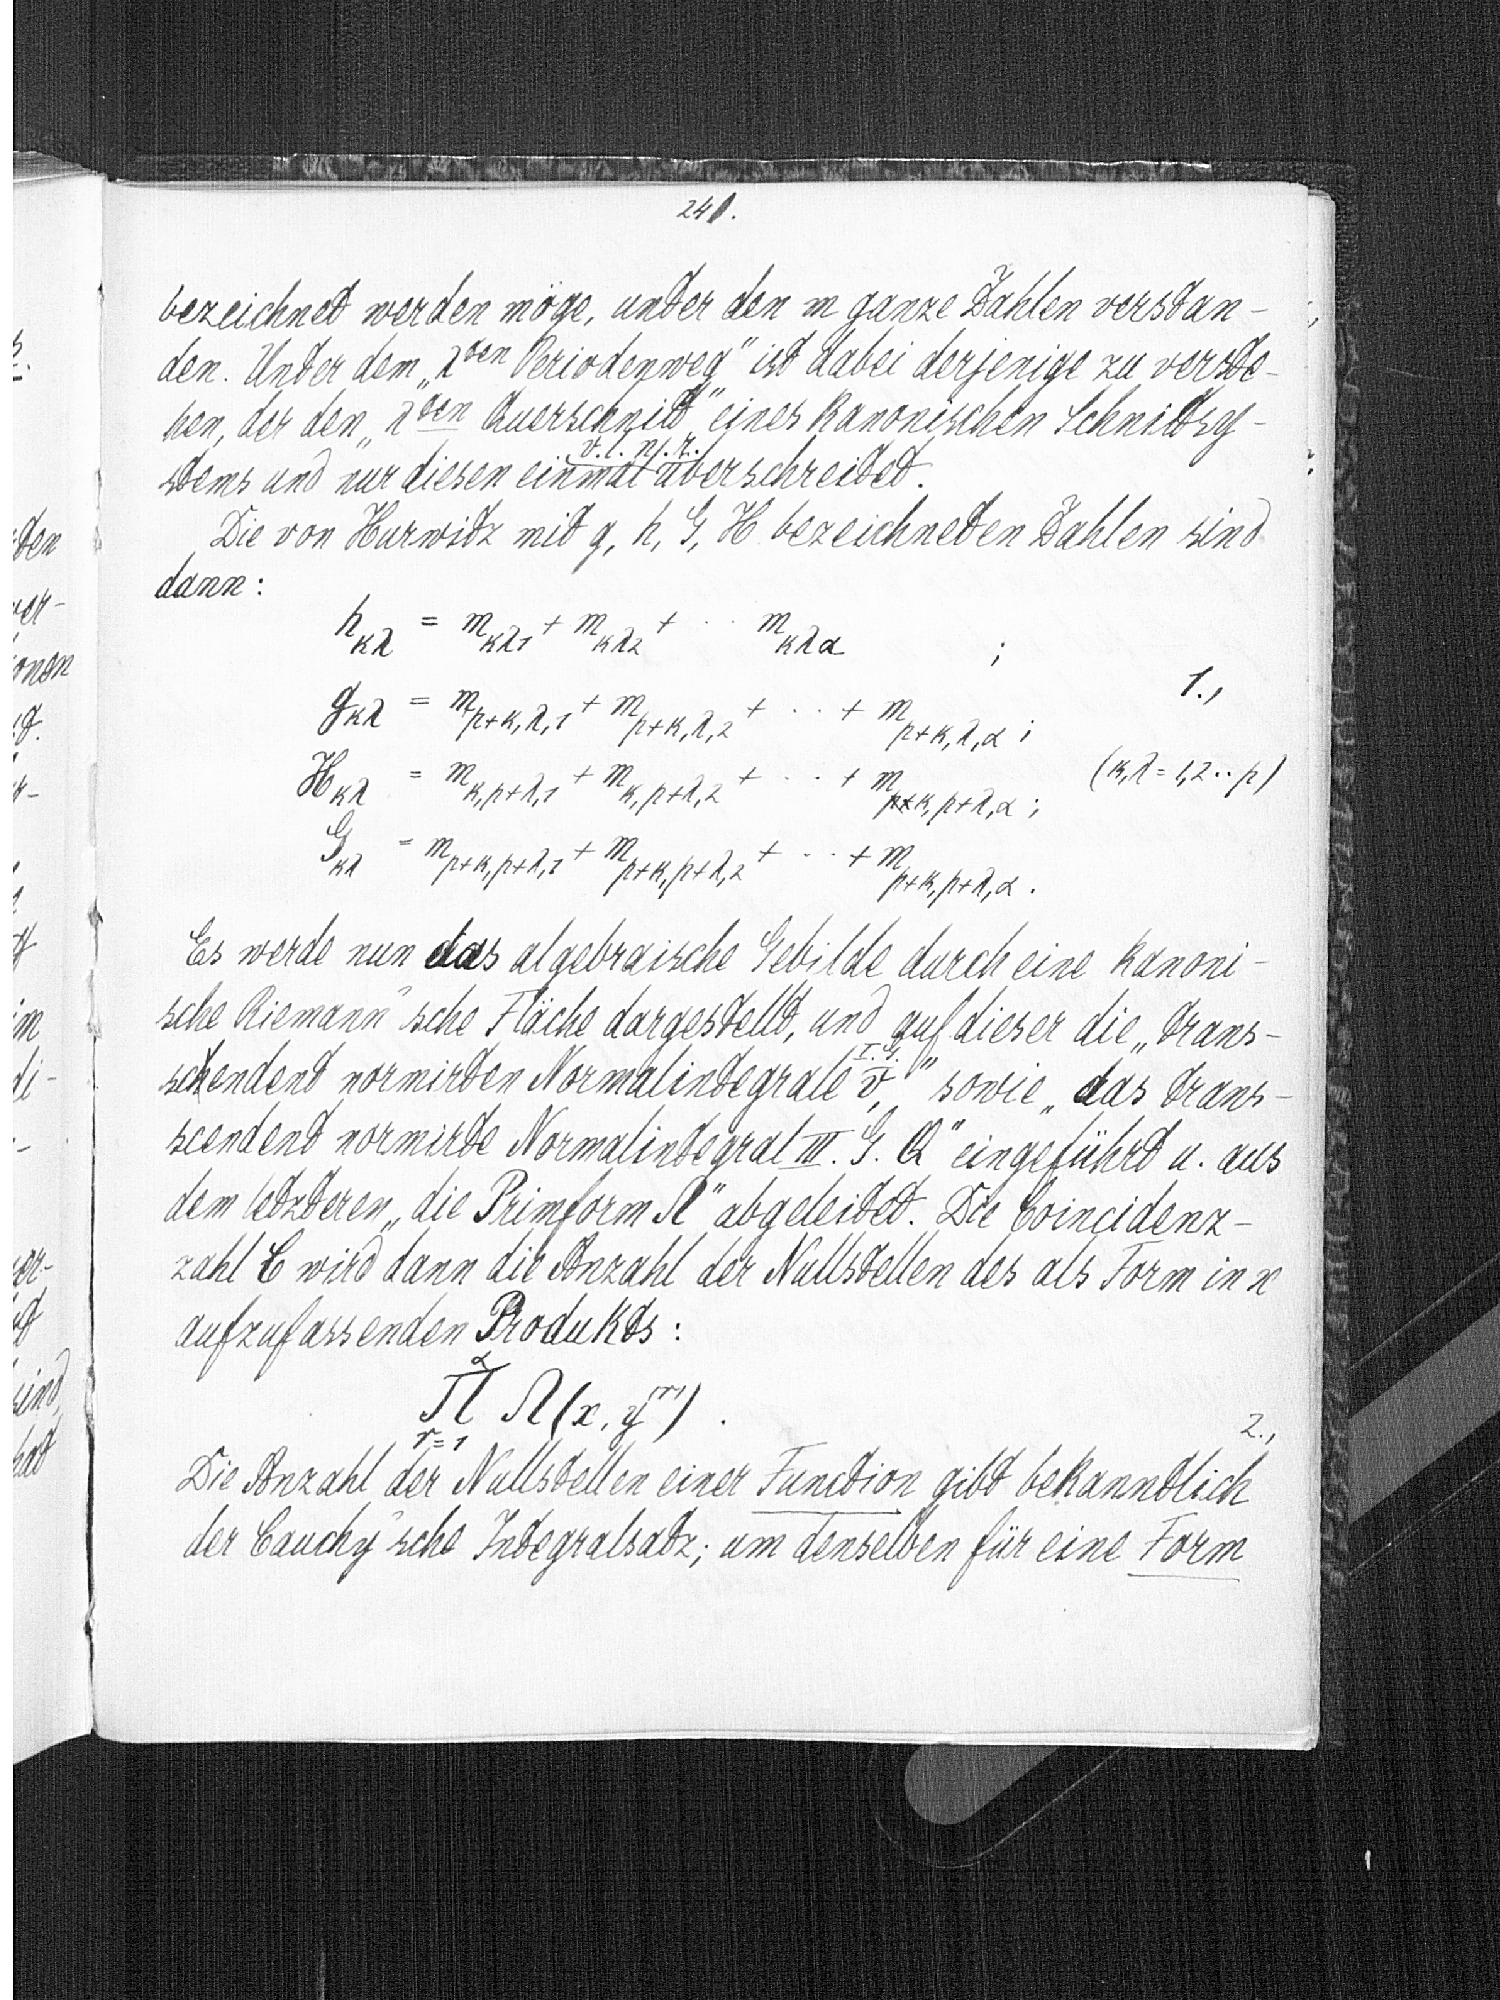 241.
bezeichnet werden möge, unter den m ganze Zahlen verstan-
den. Unter dem „λten Periodenweg" ist dabei derjenige zu verste-
hen, der den „λten Querschnitt" eines kanonischen Schnittsy-
stems und nur diesen einmal überschreitet.
v. l. n. r.
Die von Hurwitz mit g, h, G, H bezeichneten Zahlen sind
dann:
h_κλ = m_κλ1 + m_κλ2 + ·· m_κλα ;
1.,
g_κλ = m_p+κ,λ,1 + m_p+κ,λ,2 + ·· + m_p+κ,λ,α ;
H_κλ = m_κ,p+λ,1 + m_κ,p+λ,2 + ·· + m_κ,p+λ,α ; (κ,λ = 1,2 ·· p)
G_κλ = m_p+κ,p+λ,1 + m_p+κ,p+λ,2 + ·· + m_p+κ,p+λ,α .
Es werde nun das algebraische Gebilde durch eine kanoni-
sche Riemann'sche Fläche dargestellt, und auf dieser die „trans-
scendent normirten Normalintegrale I. G. v," sowie „das trans-
scendent normirte Normalintegral III. G. Q" eingeführt u. aus
dem letzteren „die Primform Ω" abgeleitet. Die Coincidenz-
zahl C wird dann die Anzahl der Nullstellen des als Form in x
aufzufassenden Produkts:
α
Π Ω(x, y^(r)) .
r=1
2.,
Die Anzahl der Nullstellen einer Function gibt bekanntlich
der Cauchy'sche Integralsatz; um denselben für eine Form